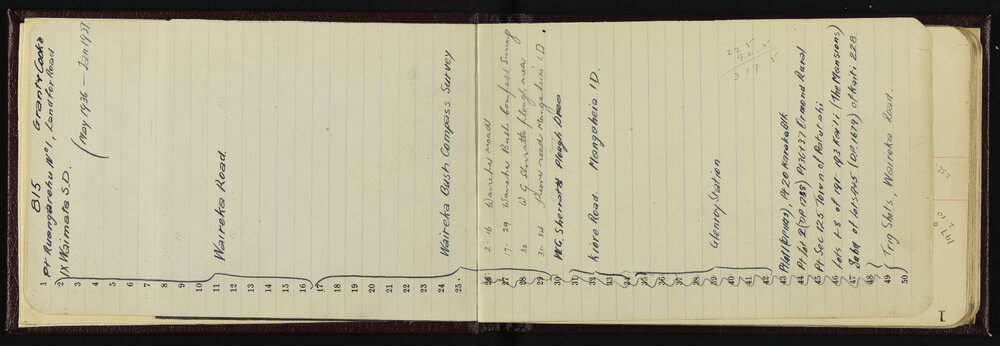 815
Grant & Cooke
Pt Ruangarehu No 1, Land for Road
IX Waimata S.D.
(May 1936 – Jan 1937
Waireka Road.
Waireka Bush Compass Survey
2 - 16 Waireka road
17 - 29 Waireka Bush Compass Survey
30 W G Sherratt plough area
31 - 34 Kiore road Mangaheia I.D.
W.G. Sherratt Plough Area
Kiore Road. Mangaheia I.D.
Glenroy Station
Pt 20 Karaka Blk
Pt Lot 2 (DP 1788) Pt 36 & 37 Ormond Rural
Pt Sec 125 Town of Patutahi
Lots 1-8 of 191-193 Kaiti (The Mansions)
Subd of Lots 4 & 5 (D.P. 1679) of Kaiti 228
Trig Shots, Waireka Road.
1
2
3
4
5
6
7
8
9
10
11
12
13
14
15
16
17
18
19
20
21
22
23
24
25
26
27
28
29
30
31
32
33
34
35
36
37
38
39
40
41
42
43
44
45
46
47
48
49
50
1